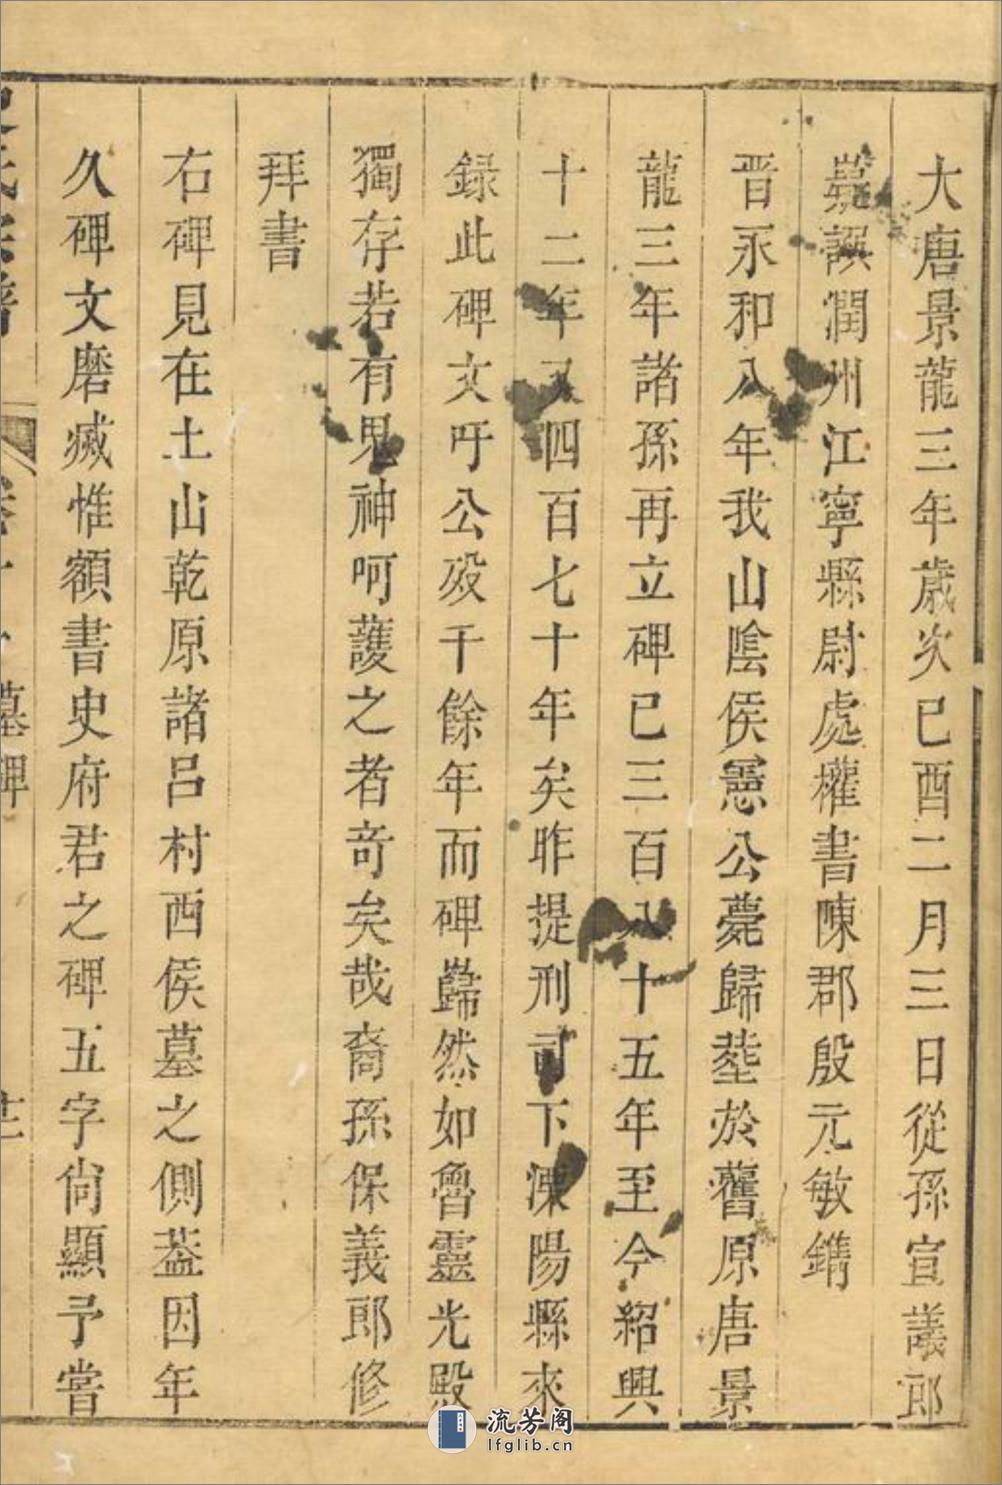 大唐景龍三年歲次已酉二月三日從孫宣議郎
嵩譔潤州江寧縣尉處權書陳郡殷元敏鐫
晋永和八年我山陰侯憲公薨歸塟於舊原唐景
龍三年諸孫再立碑已三百八十五年至今紹興
十二年又四百七十年矣昨提刑司下溧陽縣來
録此碑文吁公歿千餘年而碑巋然如魯靈光殿
獨存若有鬼神呵護之者竒矣哉裔孫保義郎修
拜書
右碑見在土山乾原諸吕村西侯墓之側葢因年
久碑文磨滅惟額書史府君之碑五字尙顯予嘗
史氏宗譜
墓碑
流芳阁
lfglib.cn